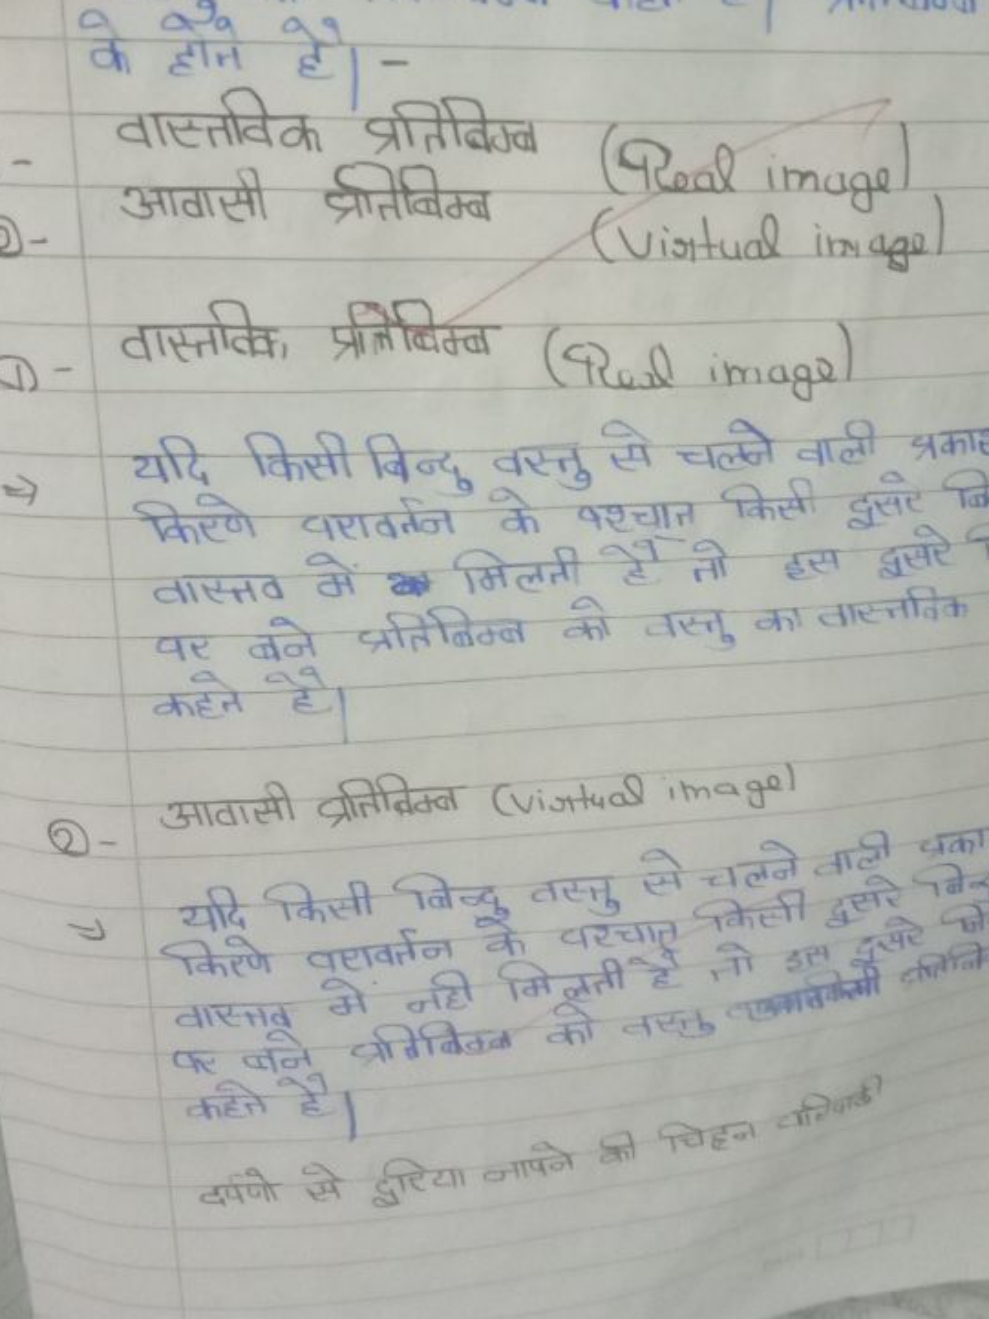 के होते हैं। -
- वास्तविक प्रतिबिम्ब (Real image)
②- आवासी प्रतिबिम्ब (Virtual image)
①- वास्तविक प्रतिबिम्ब (Real image)
⇒ यदि किसी बिन्दु वस्तु से चलने वाली प्रका
किरणे परावर्तन के पश्चात किसी दुसरे बि
वास्तव में मिलती हैं तो इस दुसरे
पर बने प्रतिबिम्ब को वस्तु का वास्तविक
कहते हैं।
②- आवासी प्रतिबिम्ब (Virtual image)
⇒ यदि किसी बिन्दु वस्तु से चलने वाली प्रका
किरणे परावर्तन के पश्चात किसी दुसरे बिन
वास्तव में नही मिलती हैं तो इस दुसरे बि
पर बने प्रतिबिम्ब को वस्तु
कहते हैं।
दर्पणो से दुरिया नापने की चिह्न